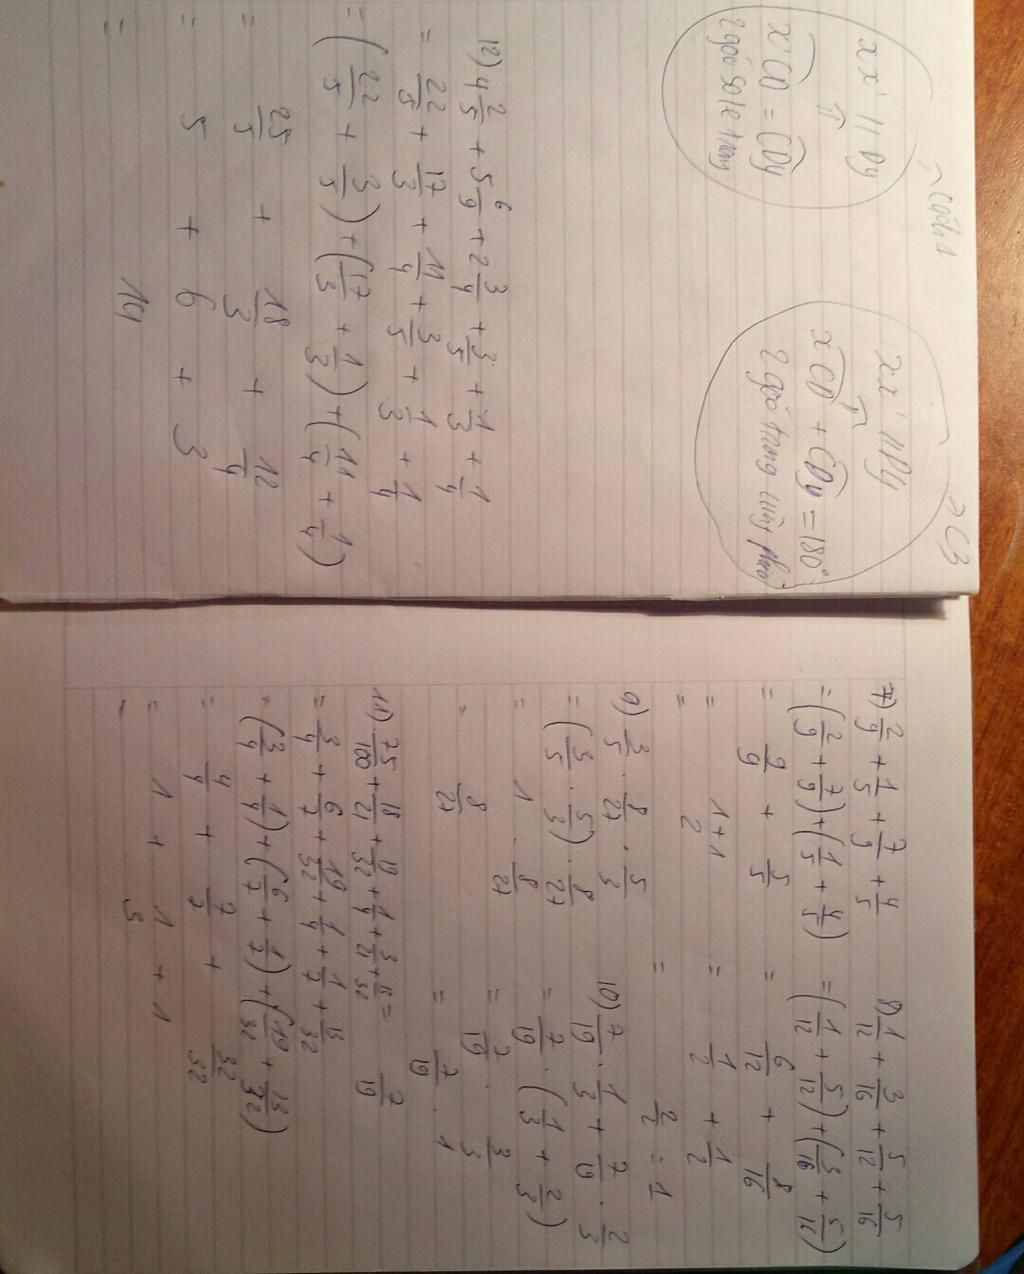 Cách 1
xx' // Dy
⇑
x'CD = CDy
2 góc so le trong
C3
xx' // Dy
⇑
xCD + CDy = 180°
2 góc trong cùng phía
12) 4 2/5 + 5 6/9 + 2 3/4 + 3/5 + 1/3 + 1/4
= 22/5 + 17/3 + 11/4 + 3/5 + 1/3 + 1/4
= (22/5 + 3/5) + (17/3 + 1/3) + (11/4 + 1/4)
= 25/5 + 18/3 + 12/4
= 5 + 6 + 3
= 14
7) 2/9 + 1/5 + 7/9 + 4/5
= (2/9 + 7/9) + (1/5 + 4/5)
= 9/9 + 5/5
= 1 + 1
= 2
8) 1/12 + 3/16 + 5/12 + 5/16
= (1/12 + 5/12) + (3/16 + 5/16)
= 6/12 + 8/16
= 1/2 + 1/2
= 2/2 = 1
9) 3/5 . 8/27 . 5/3
= (3/5 . 5/3) . 8/27
= 1 . 8/27
= 8/27
10) 7/19 . 1/3 + 7/19 . 2/3
= 7/19 . (1/3 + 2/3)
= 7/19 . 3/3
= 7/19 . 1
= 7/19
11) 75/100 + 18/21 + 19/32 + 1/4 + 3/21 + 13/32
= 3/4 + 6/7 + 19/32 + 1/4 + 1/7 + 13/32
= (3/4 + 1/4) + (6/7 + 1/7) + (19/32 + 13/32)
= 4/4 + 7/7 + 32/32
= 1 + 1 + 1
= 3